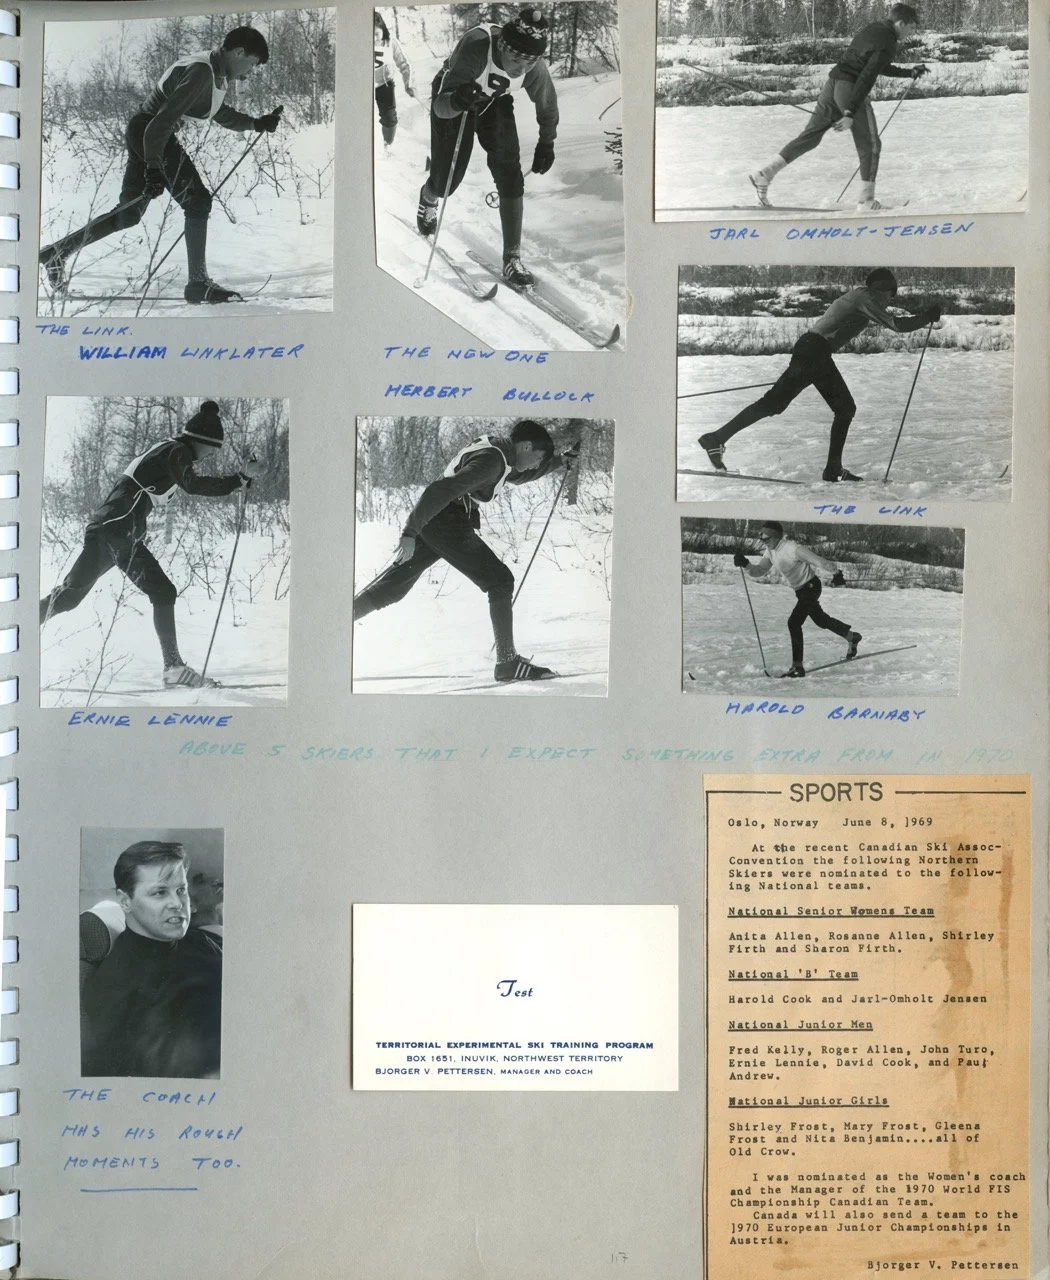 THE LINK.
WILLIAM LINKLATER
THE NEW ONE
HERBERT BULLOCK
JARL OMHOLT-JENSEN
THE LINK
ERNIE LENNIE
HAROLD BARNABY
ABOVE 5 SKIERS THAT I EXPECT SOMETHING EXTRA FROM IN 1970
THE COACH
HAS HIS ROUGH
MOMENTS TOO.
Test
TERRITORIAL EXPERIMENTAL SKI TRAINING PROGRAM
BOX 1651, INUVIK, NORTHWEST TERRITORY
BJORGER V. PETTERSEN, MANAGER AND COACH
SPORTS
Oslo, Norway June 8, 1969
At the recent Canadian Ski Assoc-
Convention the following Northern
Skiers were nominated to the follow-
ing National teams.
National Senior Womens Team
Anita Allen, Rosanne Allen, Shirley
Firth and Sharon Firth.
National 'B' Team
Harold Cook and Jarl-Omholt Jensen
National Junior Men
Fred Kelly, Roger Allen, John Turo,
Ernie Lennie, David Cook, and Paul
Andrew.
National Junior Girls
Shirley Frost, Mary Frost, Gleena
Frost and Nita Benjamin....all of
Old Crow.
I was nominated as the Women's coach
and the Manager of the 1970 World FIS
Championship Canadian Team.
Canada will also send a team to the
1970 European Junior Championships in
Austria.
Bjorger V. Pettersen
117